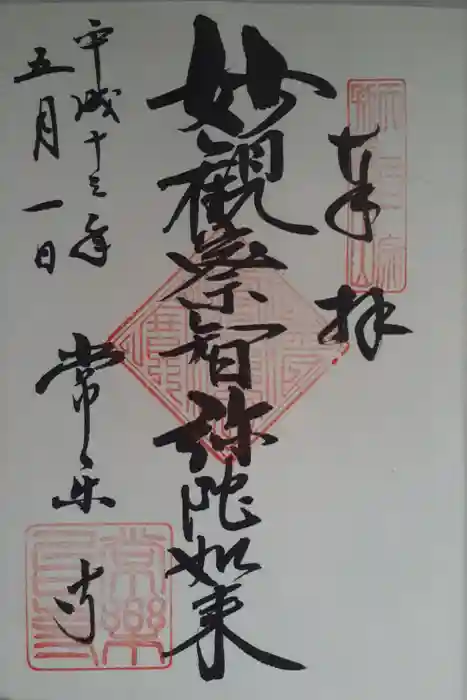 奉拝
妙觀察智弥陀如来
平成十三年
五月一日
常楽寺